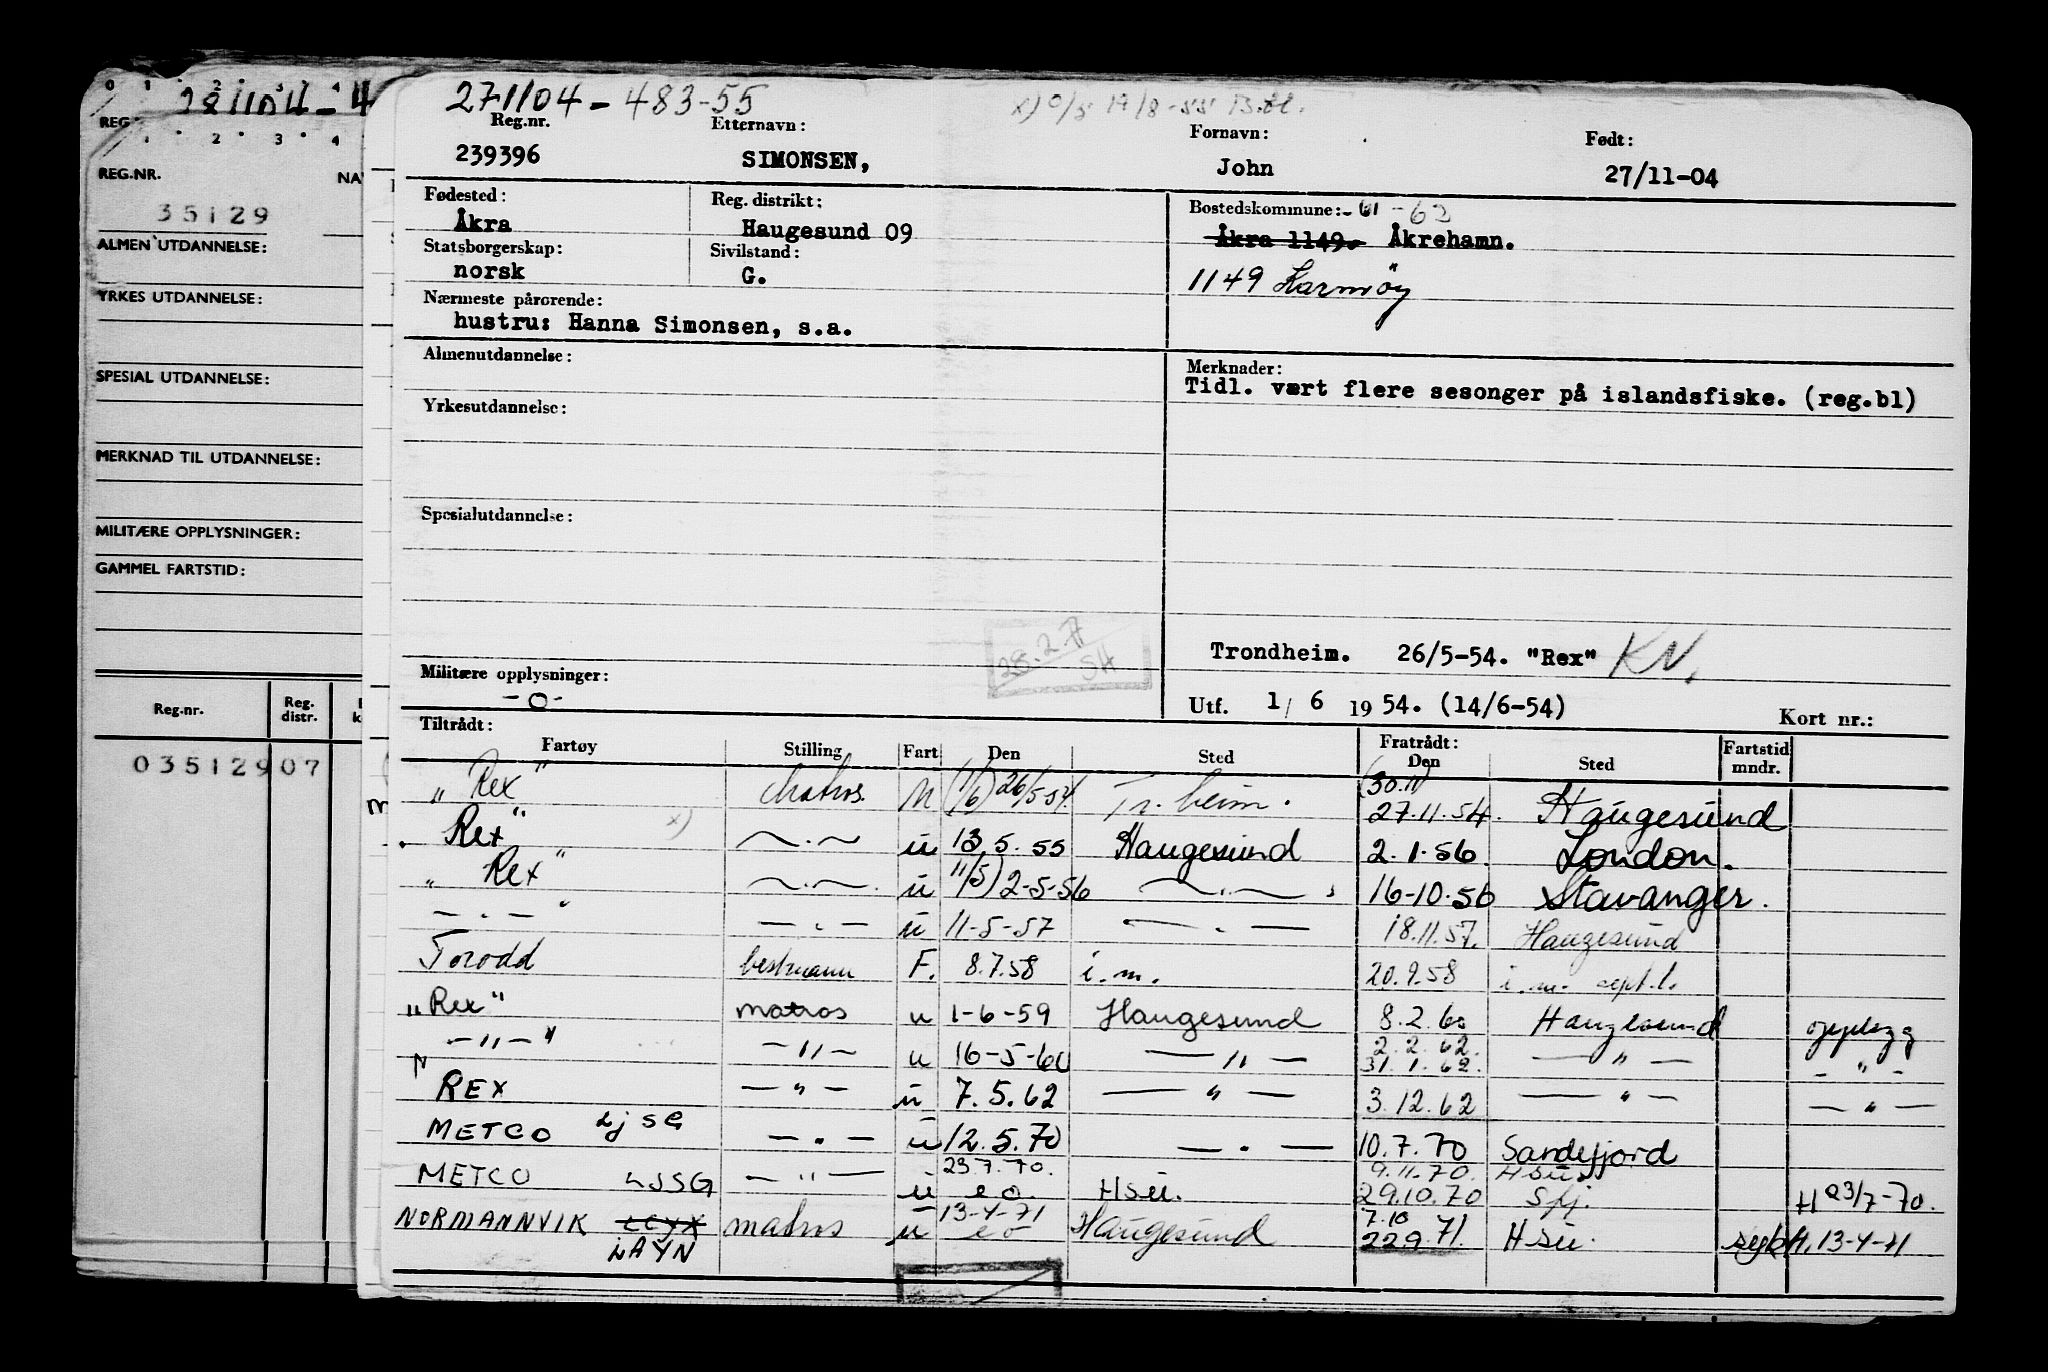 0 1 2 3 4
REG
1 2 3 4
REG.NR.
NA
35129
ALMEN UTDANNELSE:
YRKES UTDANNELSE:
SPESIAL UTDANNELSE:
MERKNAD TIL UTDANNELSE:
MILITÆRE OPPLYSNINGER:
GAMMEL FARTSTID:
Reg.nr. Reg. distr.
03512907
271104-483-55
x) 0/5 19/8-55
Reg.nr. Etternavn: Fornavn: Født:
239396 SIMONSEN, John 27/11-04
Fødested: Reg. distrikt: Bostedskommune: -61-62
Åkra Haugesund 09 Åkra 1149. Åkrehamn.
Statsborgerskap: Sivilstand:
norsk G. 1149 Karmøy
Nærmeste pårørende:
hustru: Hanna Simonsen, s.a.
Almenutdannelse: Merknader:
Tidl. vært flere sesonger på islandsfiske. (reg.bl)
Yrkesutdannelse:
Spesialutdannelse:
28.2.77
SH
Trondheim. 26/5-54. "Rex" KN.
Militære opplysninger:
-0-
Utf. 1/6 1954. (14/6-54)
Kort nr.:
Tiltrådt: Fratrådt:
Fartøy Stilling Fart Den Sted Den Sted Fartstid mndr.
„Rex" Matros. N (1/6) 26/5-54. Tr.heim. (30.11) 27.11.54. Haugesund
Rex" x) —.— u 13.5.55 Haugesund 2.1.56. London.
„ Rex" —.—. u 11/5) 2-5-56 —.— 16-10.56 Stavanger.
—.—" —.— u 11-5-57 —.— 18.11.57. Haugesund
Torodd bestmann F. 8.7.58 i.m. 20.9.58 i.m. sept.l.
„Rex" matros u 1-6-59 Haugesund 8.2.60 Haugesund opplegg
—"—" —"— u 16-5-60 —"— 2.2.62. 31.1.62. —"— —"—
REX —"— u 7.5.62 —"— 3.12.62 —"— —"—
METCO LJSG —"— u 12.5.70 —.— 10.7.70 Sandefjord
METCO LJSG —"— u 23.7.70. eo. Hsu. 9.11.70. 29.10.70 Hsu Sfj. H 23/7-70.
NORMANNVIK LCYX LAYN matros u 13-4-71 eo Haugesund 7.10 22.9.71. Hsu. sykd H. 13-4-71